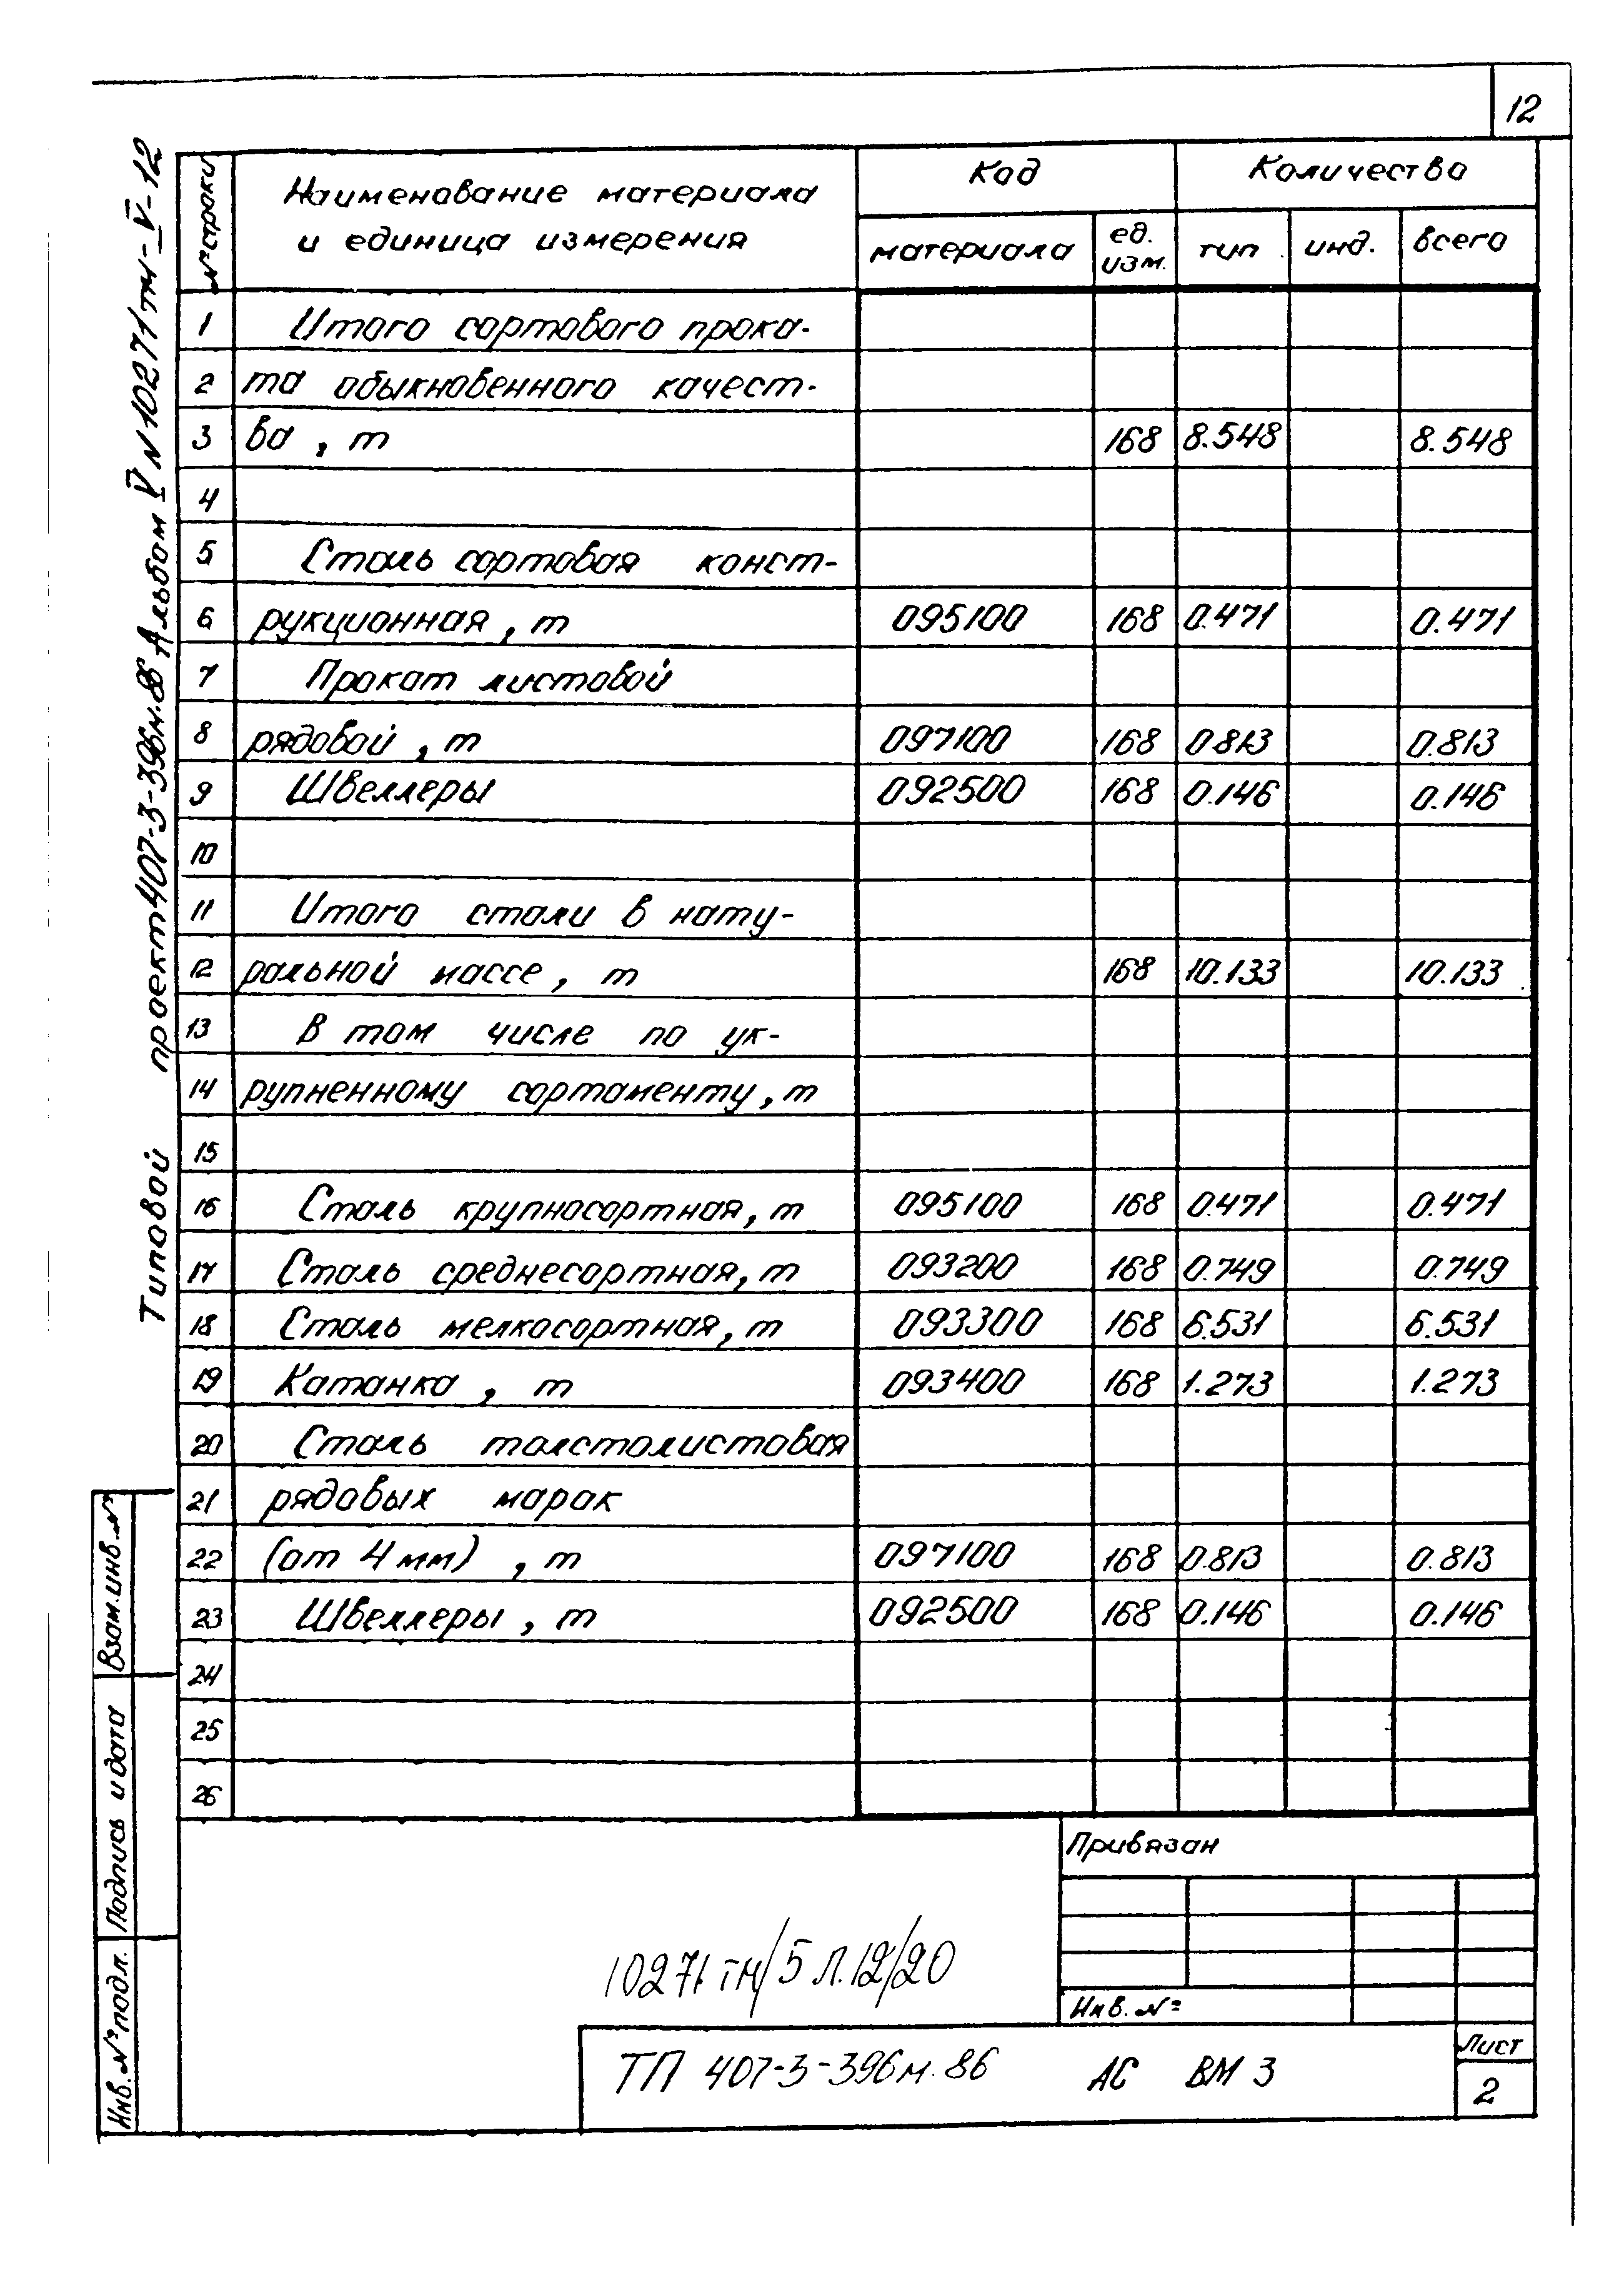 12
Типовой проект 407-3-396м.86 Альбом V N10271тм-V-12
№ строки
Наименование материала
и единица измерения
Код
Количества
материала
ед.
изм.
тип
инд.
всего
1 Итого сортового прока-
2 та обыкновенного качест-
3 ва, т 168 8.548 8.548
4
5 Сталь сортовая конст-
6 рукционная, т 095100 168 0.471 0.471
7 Прокат листовой
8 рядовой, т 097100 168 0.813 0.813
9 Швеллеры 092500 168 0.146 0.146
10
11 Итого стали в нату-
12 ральной массе, т 168 10.133 10.133
13 В том числе по ук-
14 рупненному сортаменту, т
15
16 Сталь крупносортная, т 095100 168 0.471 0.471
17 Сталь среднесортная, т 093200 168 0.749 0.749
18 Сталь мелкосортная, т 093300 168 6.531 6.531
19 Катанка, т 093400 168 1.273 1.273
20 Сталь толстолистовая
21 рядовых марок
22 (от 4 мм), т 097100 168 0.813 0.813
23 Швеллеры, т 092500 168 0.146 0.146
24
25
26
Взам.инв.№
Подпись и дата
Инв.№подл.
Привязан
Инв.№
10271тм/5 л.12/20
ТП 407-3-396м.86 АС ВМ 3
Лист
2